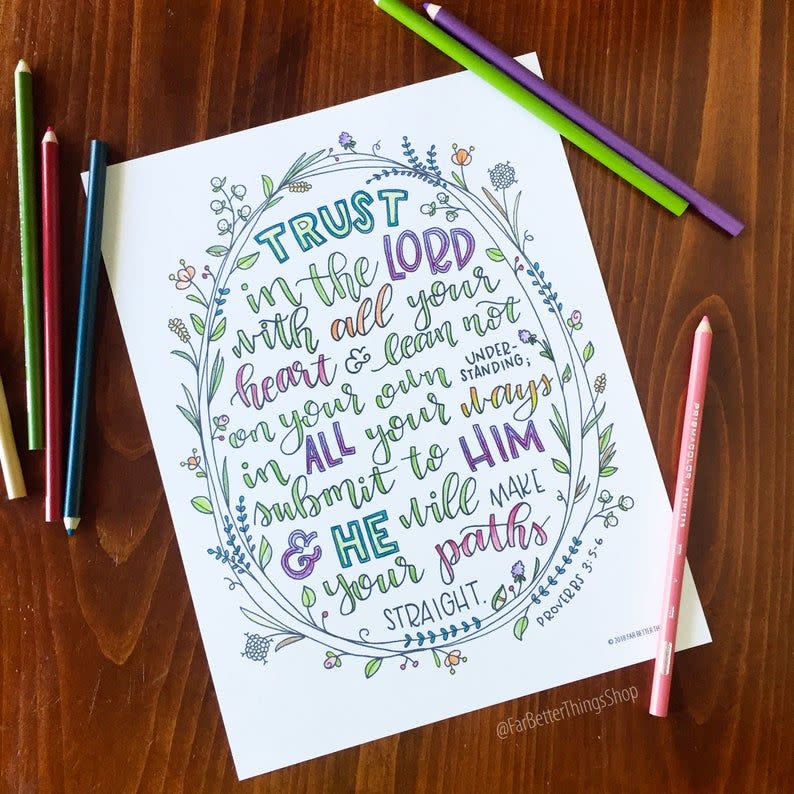 TRUST
in the LORD
with all your
heart & lean not
on your own UNDER-
STANDING;
in ALL your ways
submit to HIM
& HE will MAKE
your paths
STRAIGHT.
PROVERBS 3:5-6
© 2018 FAR BETTER TH
@FarBetterThingsShop
PRISMACOLOR